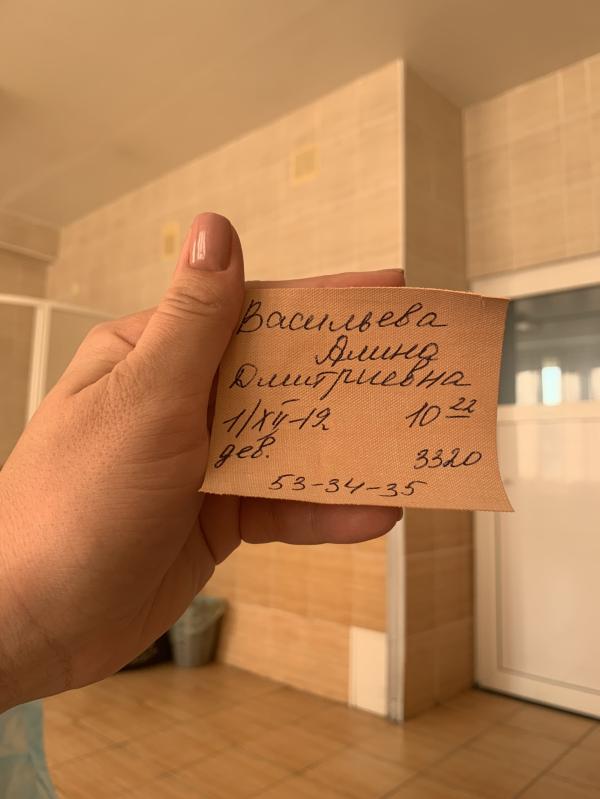 Васильева
Алина
Дмитриевна
1/XII-19 10 22
дев. 3320
53-34-35